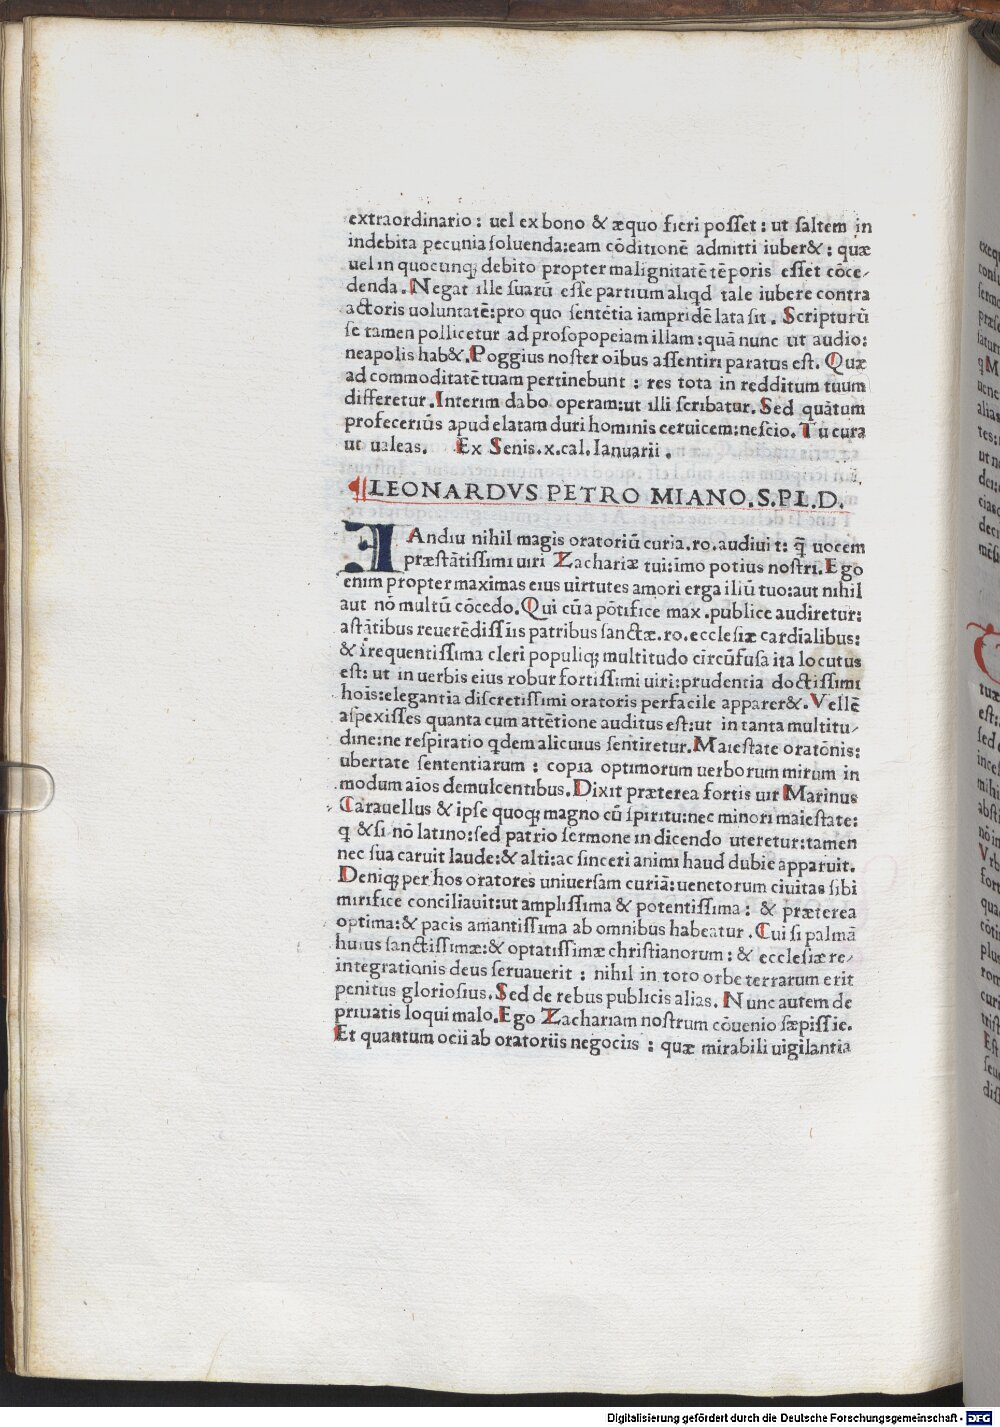 extraordinario: uel ex bono & æquo fieri posset: ut saltem in
indebita pecunia soluenda:eam cōditionē admitti iuber&: quæ
uel in quocunq; debito propter malignitatē tēporis esset cōce/
denda. Negat ille suarū esse partium aliqd tale iubere contra
actoris uoluntatē:pro quo sentētia iampridē lata sit. Scripturū
se tamen pollicetur ad prosopopeiam illam:quā nunc ut audio:
neapolis hab&. Poggius noster oibus assentiri paratus est. Quæ
ad commoditatē tuam pertinebunt: res tota in redditum tuum
differetur. Interim dabo operam:ut illi scribatur. Sed quātum
profecerius apud elatam duri hominis ceruicem:nescio. Tu cura
ut ualeas. Ex Senis.x.cal. Ianuarii.
LEONARDVS PETRO MIANO.S.PL.D.
IAndiu nihil magis oratoriū curia.ro.audiuit: q̄ uocem
præstātissimi uiri Zachariæ tui:imo potius nostri. Ego
enim propter maximas eius uirtutes amori erga illū tuo:aut nihil
aut nō multū cōcedo. Qui cū a pōtifice max.publice audiretur:
astātibus reuerēdissīis patribus sanctæ.ro.ecclesiæ cardīalibus:
& frequentissima cleri populiq; multitudo circūfusa ita locutus
est: ut in uerbis eius robur fortissimi uiri:prudentia doctissimi
hois:elegantia discretissimi oratoris perfacile apparer&. Vellē
aspexisses quanta cum attētione auditus est:ut in tanta multitu/
dine:ne respiratio qdem alicuius sentiretur. Maiestate orationis:
ubertate sententiarum: copia optimorum uerborum mirum in
modum aīos demulcentibus. Dixit præterea fortis uir Marinus
Carauellus & ipse quoq; magno cū spiritu:nec minori maiestate:
q &si nō latino:sed patrio sermone in dicendo uteretur:tamen
nec sua caruit laude:& alti:ac sinceri animi haud dubie apparuit.
Deniq; per hos oratores uniuersam curiā:uenetorum ciuitas sibi
mirifice conciliauit:ut amplissima & potentissima: & præterea
optima:& pacis amantissima ab omnibus habeatur. Cui si palmā
huius sanctissimæ:& optatissimæ christianorum:& ecclesiæ re/
integrationis deus seruauerit: nihil in toto orbe terrarum erit
penitus gloriosius. Sed de rebus publicis alias. Nunc autem de
priuatis loqui malo. Ego Zachariam nostrum cōuenio sæpissīe.
Et quantum ocii ab oratoriis negociis: quæ mirabili uigilantia
Digitalisierung gefördert durch die Deutsche Forschungsgemeinschaft - DFG